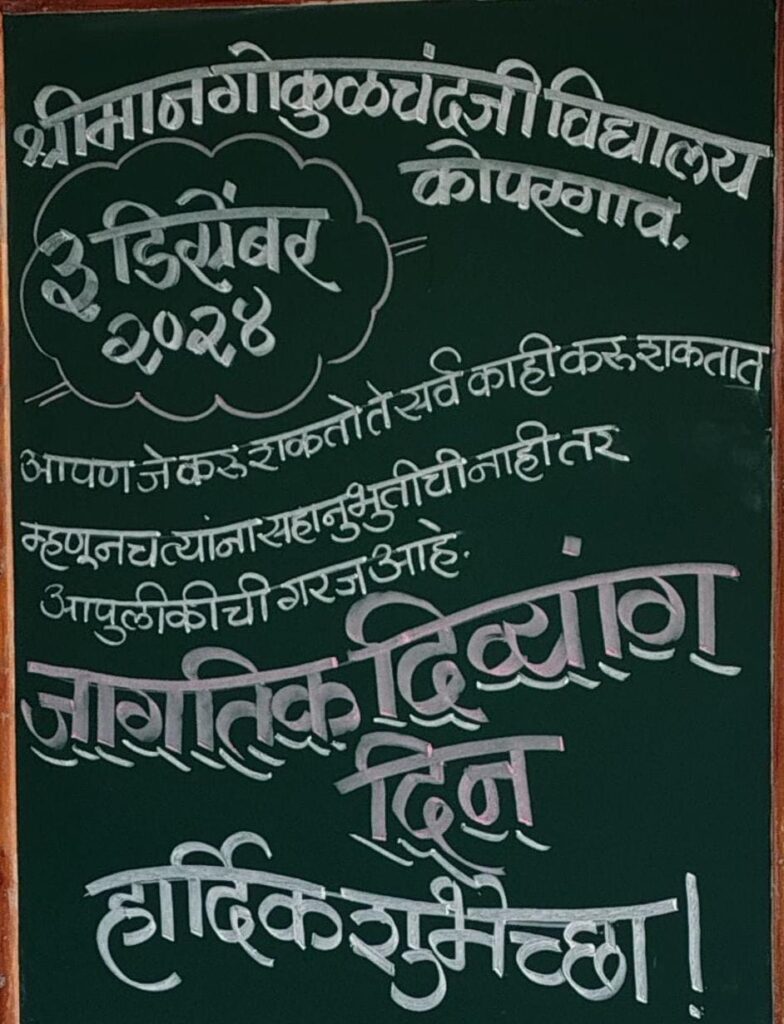 श्रीमान गोकुळचंदजी विद्यालय
कोपरगाव.
३ डिसेंबर
२०२४
आपण जे करू शकतो ते सर्व काही करू शकतात
म्हणूनच त्यांना सहानुभुतीची नाही तर
आपुलीकीची गरज आहे.
जागतिक दिव्यांग
दिन
हार्दिक शुभेच्छा!